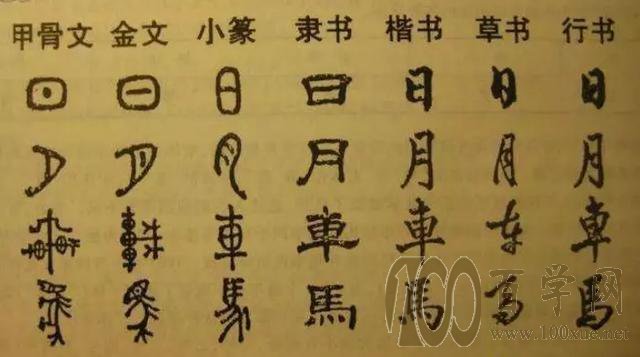 甲骨文 金文 小篆 隶书 楷书 草书 行书
日 日 日 日 日 日 日
月 月 月 月 月 月 月
車 車 車 車 車 车 車
馬 馬 馬 馬 馬 马 馬
100百学网
www.100xue.net